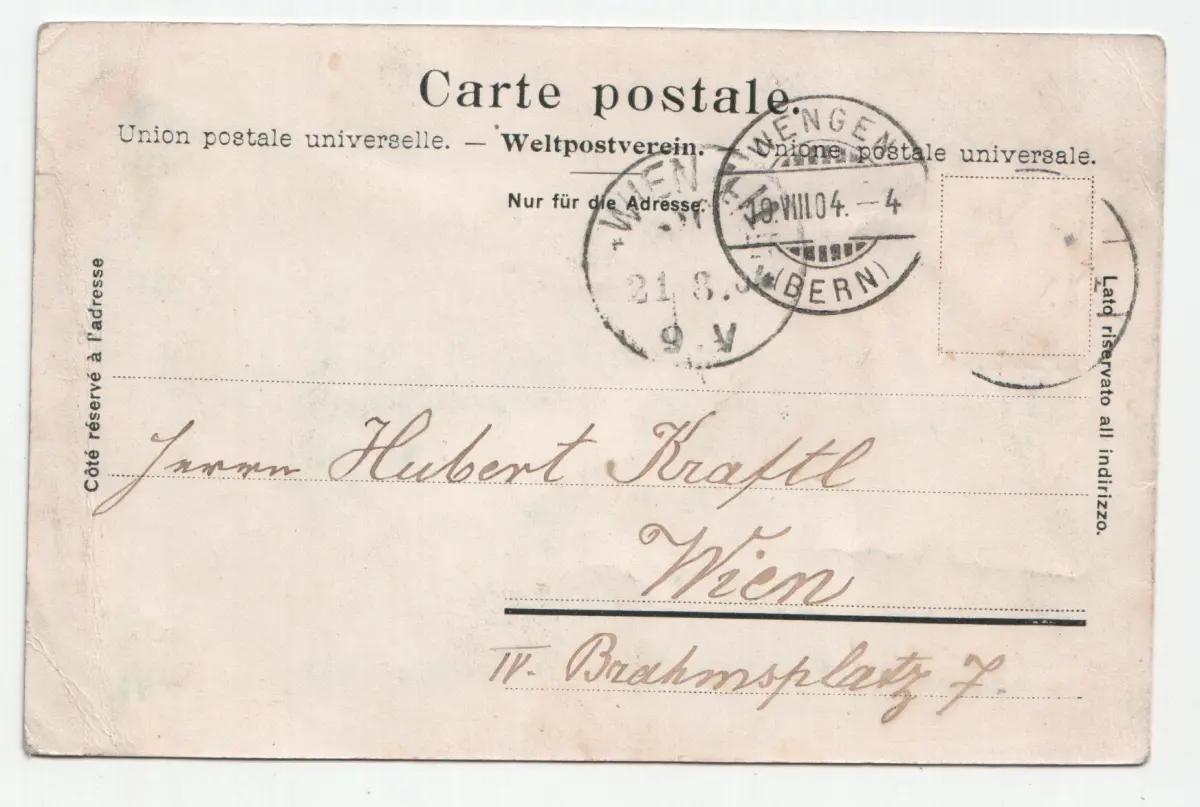 Carte postale.
Union postale universelle. — Weltpostverein. — Unione postale universale.
Nur für die Adresse.
WENGEN
19.VIII.04. – 4
(BERN)
WIEN
21.8.
9.V
Côté réservé à l'adresse
Lato riservato all indirizzo.
Herrn Hubert Kraftl
Wien
IV. Brahmsplatz 7.